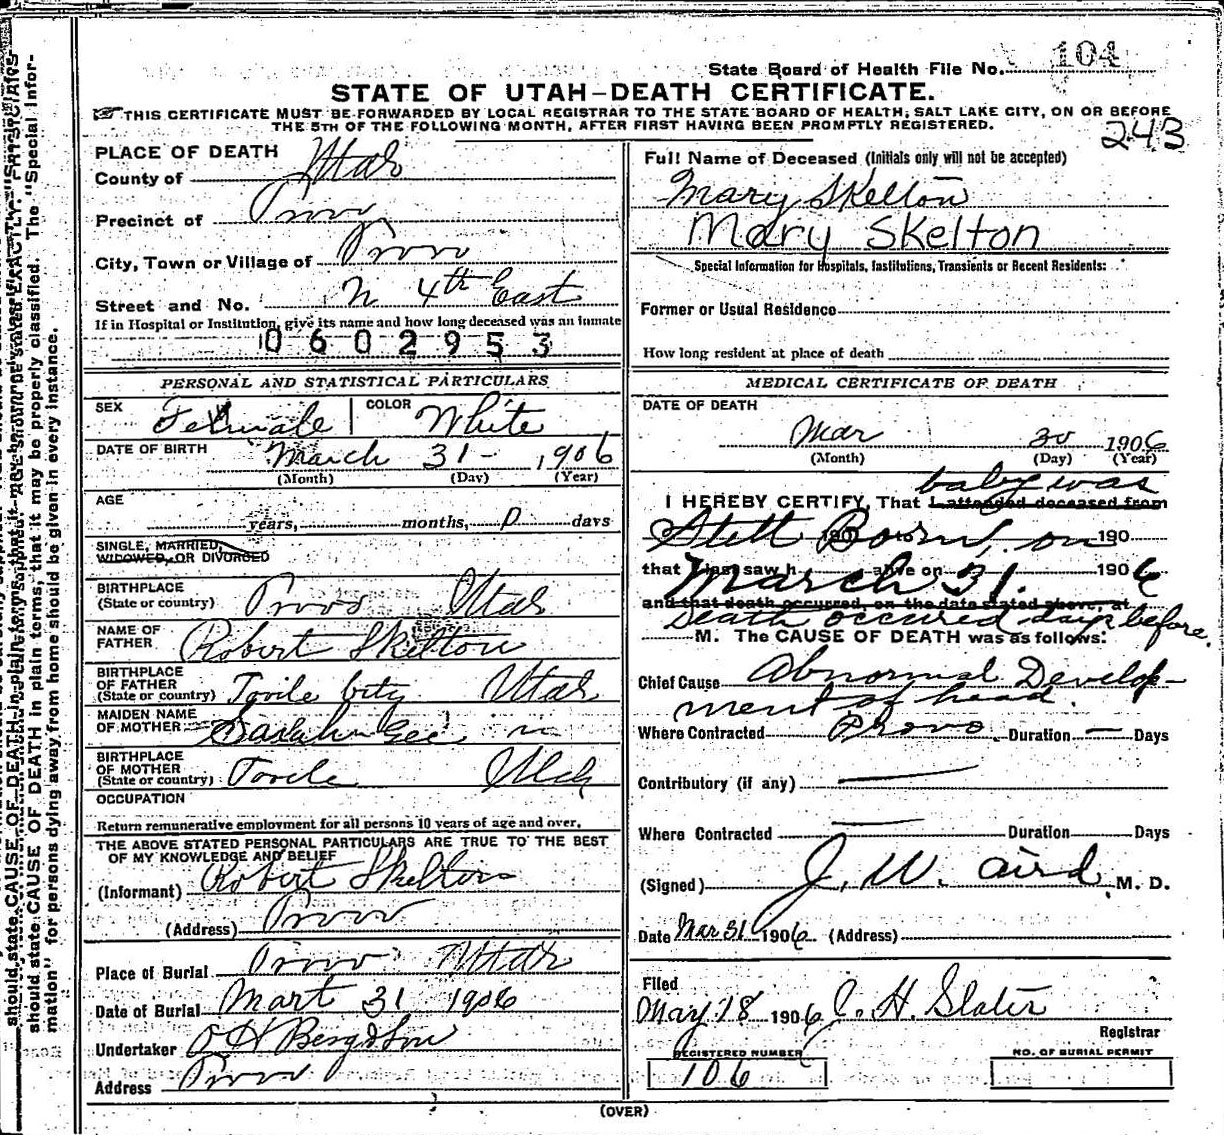 State Board of Health File No. 104
STATE OF UTAH—DEATH CERTIFICATE.
THIS CERTIFICATE MUST BE FORWARDED BY LOCAL REGISTRAR TO THE STATE BOARD OF HEALTH, SALT LAKE CITY, ON OR BEFORE
THE 5TH OF THE FOLLOWING MONTH, AFTER FIRST HAVING BEEN PROMPTLY REGISTERED.
243
PLACE OF DEATH
County of Utah
Precinct of Provo
City, Town or Village of Provo
Street and No. N 4th East
If in Hospital or Institution, give its name and how long deceased was an inmate
0602953
PERSONAL AND STATISTICAL PARTICULARS
SEX Female COLOR White
DATE OF BIRTH March 31 - 1906
(Month) (Day) (Year)
AGE
years, months, 0 days
SINGLE, MARRIED,
WIDOWED, OR DIVORCED
BIRTHPLACE
(State or country) Provo Utah
NAME OF
FATHER Robert Skelton
BIRTHPLACE
OF FATHER
(State or country) Tooile City Utah
MAIDEN NAME
OF MOTHER Sarah Gee
BIRTHPLACE
OF MOTHER
(State or country) Tooile Utah
OCCUPATION
Return remunerative employment for all persons 10 years of age and over.
THE ABOVE STATED PERSONAL PARTICULARS ARE TRUE TO THE BEST
OF MY KNOWLEDGE AND BELIEF
(Informant) Robert Skelton
(Address) Provo
Place of Burial Provo Utah
Date of Burial Mart 31 1906
Undertaker O H Berg & Son
Address Provo
Full Name of Deceased (Initials only will not be accepted)
Mary Skelton
Mary Skelton
Special Information for Hospitals, Institutions, Transients or Recent Residents:
Former or Usual Residence
How long resident at place of death
MEDICAL CERTIFICATE OF DEATH
DATE OF DEATH
Mar 30 1906
(Month) (Day) (Year)
baby was
I HEREBY CERTIFY, That I attended deceased from
Stell Born, on 190
that I last saw h alive on 1906
March 31.
and that death occurred, on the date stated above, at
Death occured days before
M. The CAUSE OF DEATH was as follows:
Chief Cause Abnormal Develop-
ment of head.
Where Contracted Provo. Duration — Days
Contributory (if any) —
Where Contracted — Duration Days
(Signed) J. W. Aird M. D.
Date Mar 31 1906 (Address)
Filed
May 18 1906 J. H. Slater
Registrar
REGISTERED NUMBER
106
NO. OF BURIAL PERMIT
(OVER)
should state CAUSE OF DEATH in plain terms, that it may be properly classified. The "Special Infor-
mation" for persons dying away from home should be given in every instance.